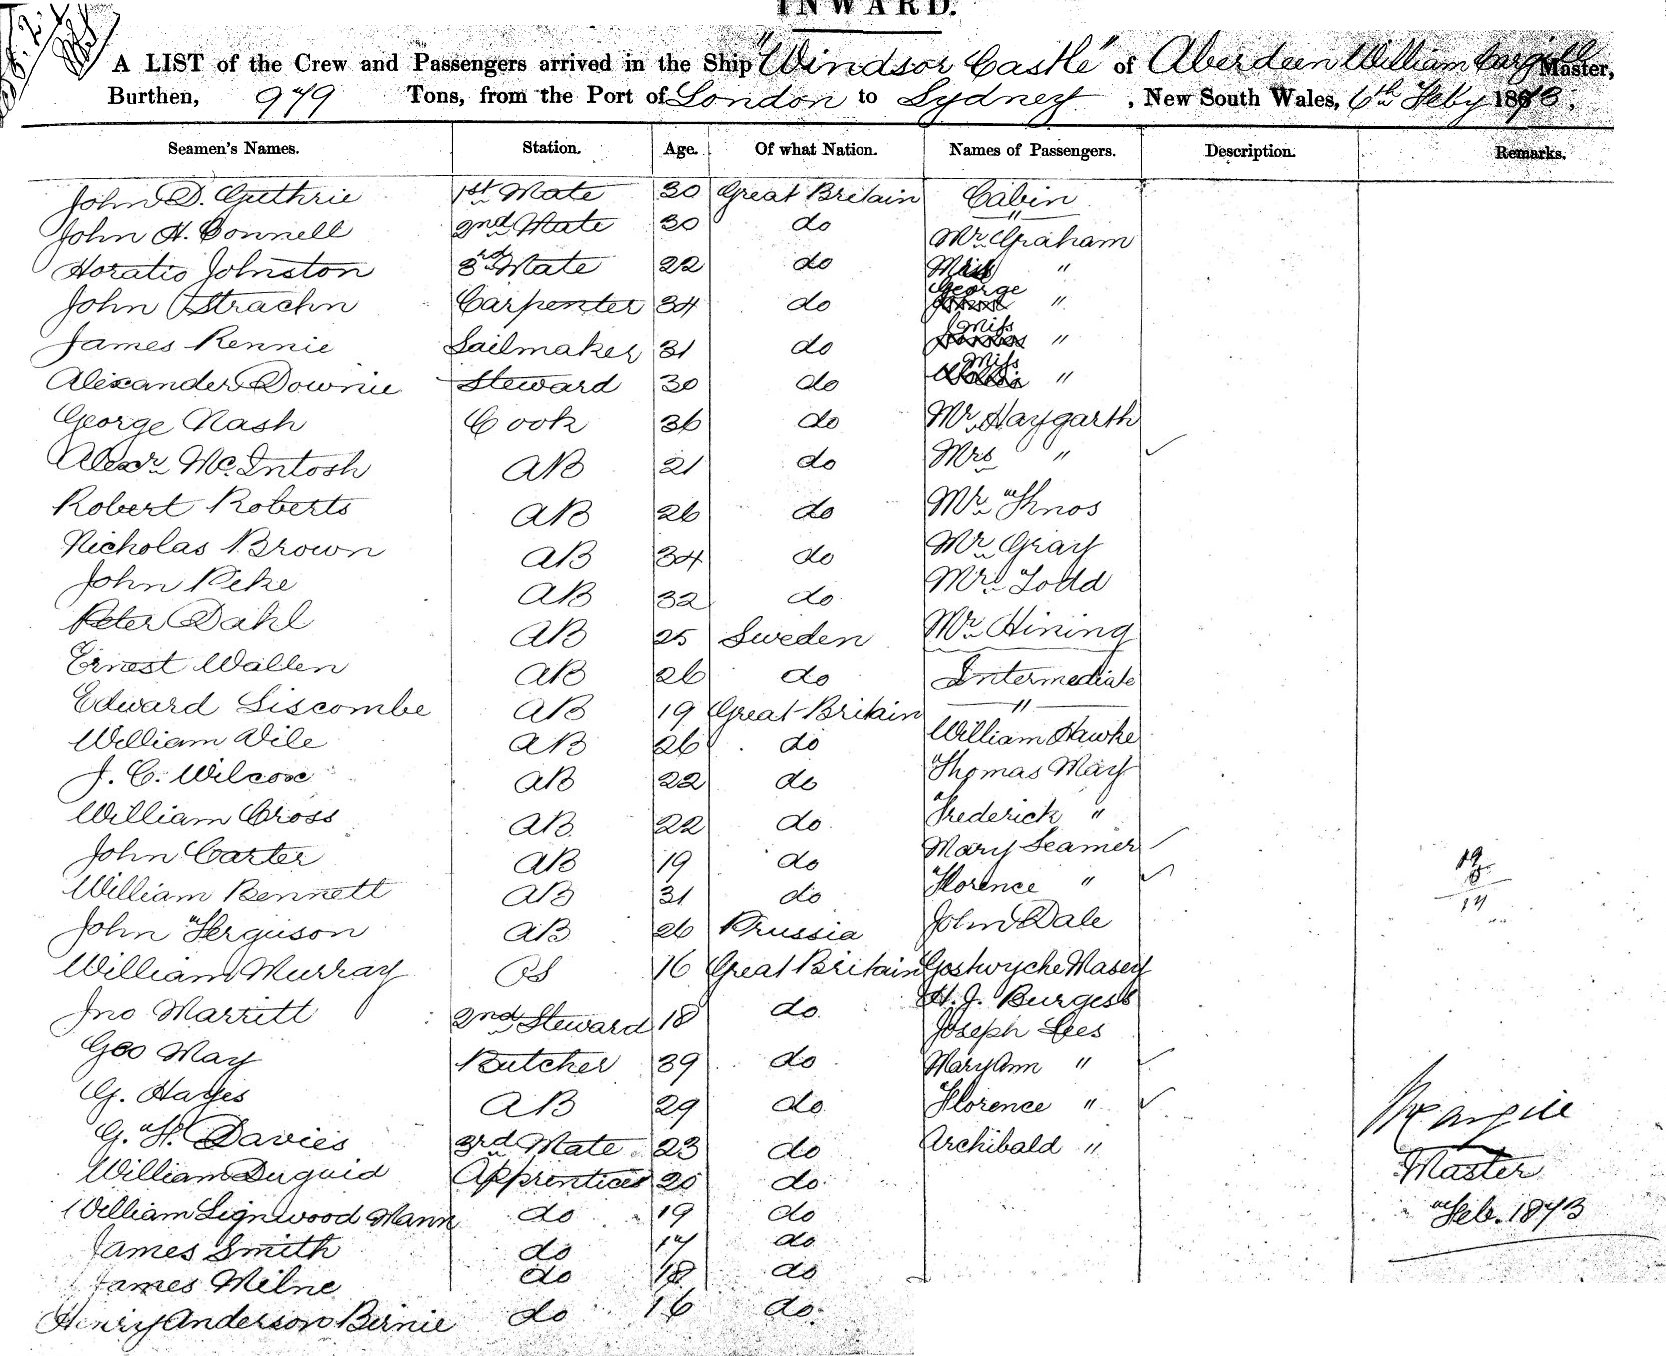 INWARD.
A LIST of the Crew and Passengers arrived in the Ship "Windsor Castle" of Aberdeen William Cargill Master,
Burthen, 979 Tons, from the Port of London to Sydney, New South Wales, 6th Feby 1873.
Seamen's Names. Station. Age. Of what Nation. Names of Passengers. Description. Remarks.
John D. Guthrie 1st Mate 30 Great Britain Cabin
John H. Connell 2nd Mate 30 do Mr Graham
Horatio Johnston 3rd Mate 22 do "
John Strachn Carpenter 34 do George "
James Rennie Sailmaker 31 do Miss "
Alexander Downie Steward 30 do Miss "
George Nash Cook 36 do Mr Haygarth
Alexr McIntosh AB 21 do Mrs "
Robert Roberts AB 26 do Mr
Nicholas Brown AB 34 do Mr Gray
John Peke AB 32 do Mr Todd
Peter Dahl AB 25 Sweden Mr Hining
Ernest Wallen AB 26 do Intermediate
Edward Liscombe AB 19 Great Britain "
William Vile AB 26 do William Hawke
J. C. Wilcox AB 22 do Thomas May
William Cross AB 22 do Frederick "
John Carter AB 19 do Mary Seamer
William Bennett AB 31 do Florence "
John Ferguson AB 26 Prussia John Dale
William Murray OS 16 Great Britain Gostwyche Masey
H. J. Burgess
Jno Marritt 2nd Steward 18 do Joseph Lees
Geo May Butcher 39 do Mary Ann "
G. Hayes AB 29 do Florence "
G. H. Davies 3rd Mate 23 do Archibald "
William Duguid Apprentices 20 do
William Lignwood Mann do 19 do
James Smith do 17 do
James Milne do 18 do
Henry Anderson Bernie do 16 do
W Cargill
Master
Feb. 1873